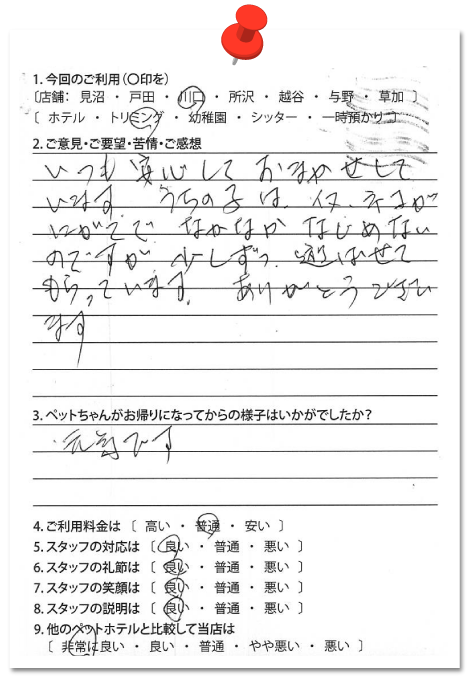 1. 今回のご利用(〇印を)
〔店舗： 見沼 ・ 戸田 ・ 川口 ・ 所沢 ・ 越谷 ・ 与野 ・ 草加 〕
〔 ホテル ・ トリミング ・ 幼稚園 ・ シッター ・ 一時預かり 〕
2. ご意見・ご要望・苦情・ご感想
いつも 安心して おまかせして
います. うちの子は、イヌ.ネコが
にがてで なかなか なじめない
のですが 少しずつ 遊ばせて
もらっています. ありがとうござい
ます
3. ペットちゃんがお帰りになってからの様子はいかがでしたか?
元気です
4. ご利用料金は 〔 高い ・ 普通 ・ 安い 〕
5. スタッフの対応は 〔 良い ・ 普通 ・ 悪い 〕
6. スタッフの礼節は 〔 良い ・ 普通 ・ 悪い 〕
7. スタッフの笑顔は 〔 良い ・ 普通 ・ 悪い 〕
8. スタッフの説明は 〔 良い ・ 普通 ・ 悪い 〕
9. 他のペットホテルと比較して当店は
〔 非常に良い ・ 良い ・ 普通 ・ やや悪い ・ 悪い 〕